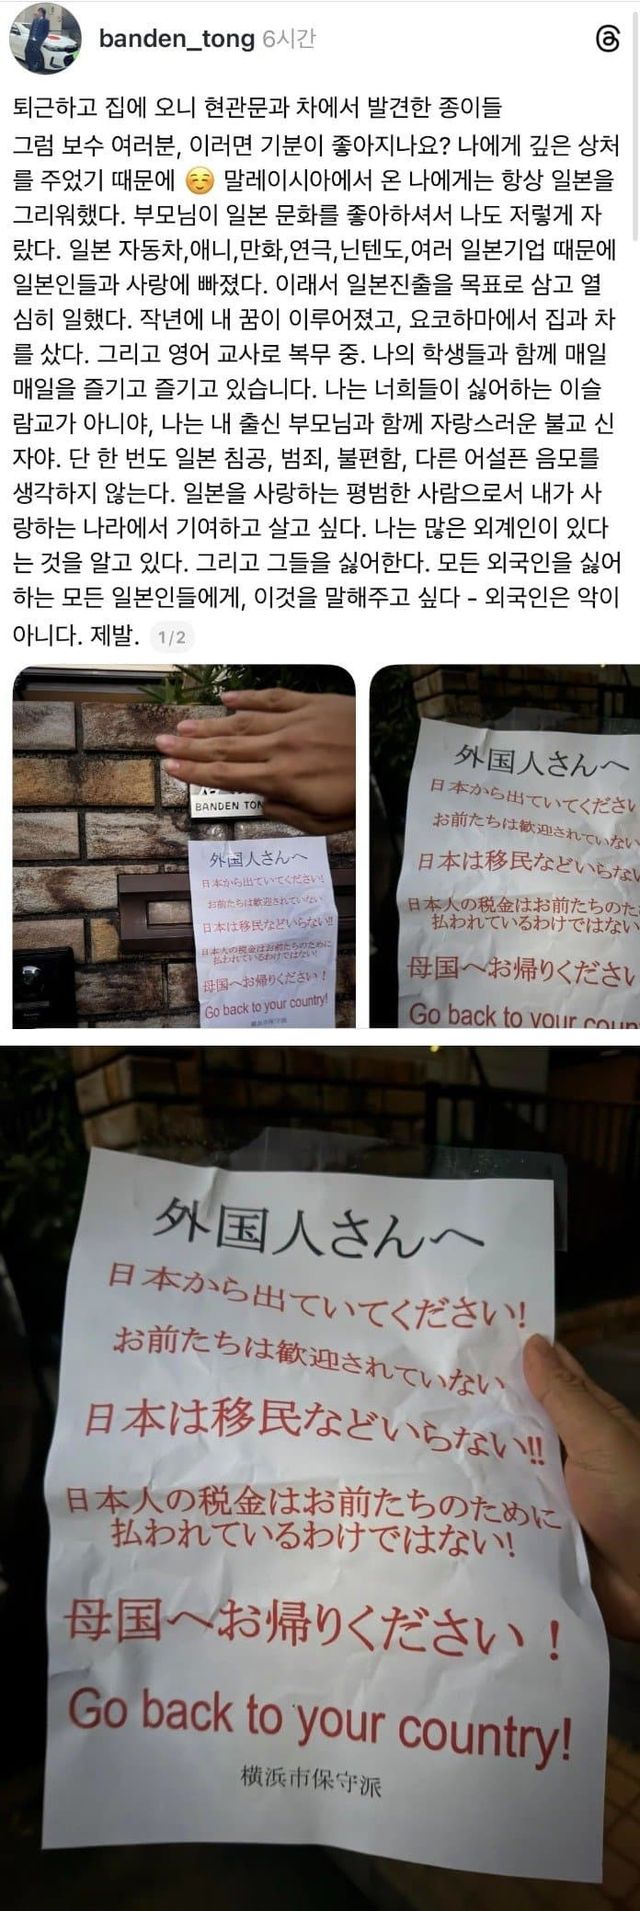 banden_tong 6시간
퇴근하고 집에 오니 현관문과 차에서 발견한 종이들
그럼 보수 여러분, 이러면 기분이 좋아지나요? 나에게 깊은 상처
를 주었기 때문에 ☺️ 말레이시아에서 온 나에게는 항상 일본을
그리워했다. 부모님이 일본 문화를 좋아하셔서 나도 저렇게 자
랐다. 일본 자동차,애니,만화,연극,닌텐도,여러 일본기업 때문에
일본인들과 사랑에 빠졌다. 이래서 일본진출을 목표로 삼고 열
심히 일했다. 작년에 내 꿈이 이루어졌고, 요코하마에서 집과 차
를 샀다. 그리고 영어 교사로 복무 중. 나의 학생들과 함께 매일
매일을 즐기고 즐기고 있습니다. 나는 너희들이 싫어하는 이슬
람교가 아니야, 나는 내 출신 부모님과 함께 자랑스러운 불교 신
자야. 단 한 번도 일본 침공, 범죄, 불편함, 다른 어설픈 음모를
생각하지 않는다. 일본을 사랑하는 평범한 사람으로서 내가 사
랑하는 나라에서 기여하고 살고 싶다. 나는 많은 외계인이 있다
는 것을 알고 있다. 그리고 그들을 싫어한다. 모든 외국인을 싫어
하는 모든 일본인들에게, 이것을 말해주고 싶다 - 외국인은 악이
아니다. 제발. 1/2
BANDEN TON
外国人さんへ
日本から出ていてください!
お前たちは歓迎されていない
日本は移民などいらない!!
日本人の税金はお前たちのために
払われているわけではない!
母国へお帰りください!
Go back to your country!
横浜市保守派
外国人さんへ
日本から出ていてくださ
お前たちは歓迎されていない
日本は移民などいらな
日本人の税金はお前たちのた
払われているわけではない
母国へお帰りくださ
Go back to your coun
外国人さんへ
日本から出ていてください!
お前たちは歓迎されていない
日本は移民などいらない!!
日本人の税金はお前たちのために
払われているわけではない!
母国へお帰りください!
Go back to your country!
横浜市保守派